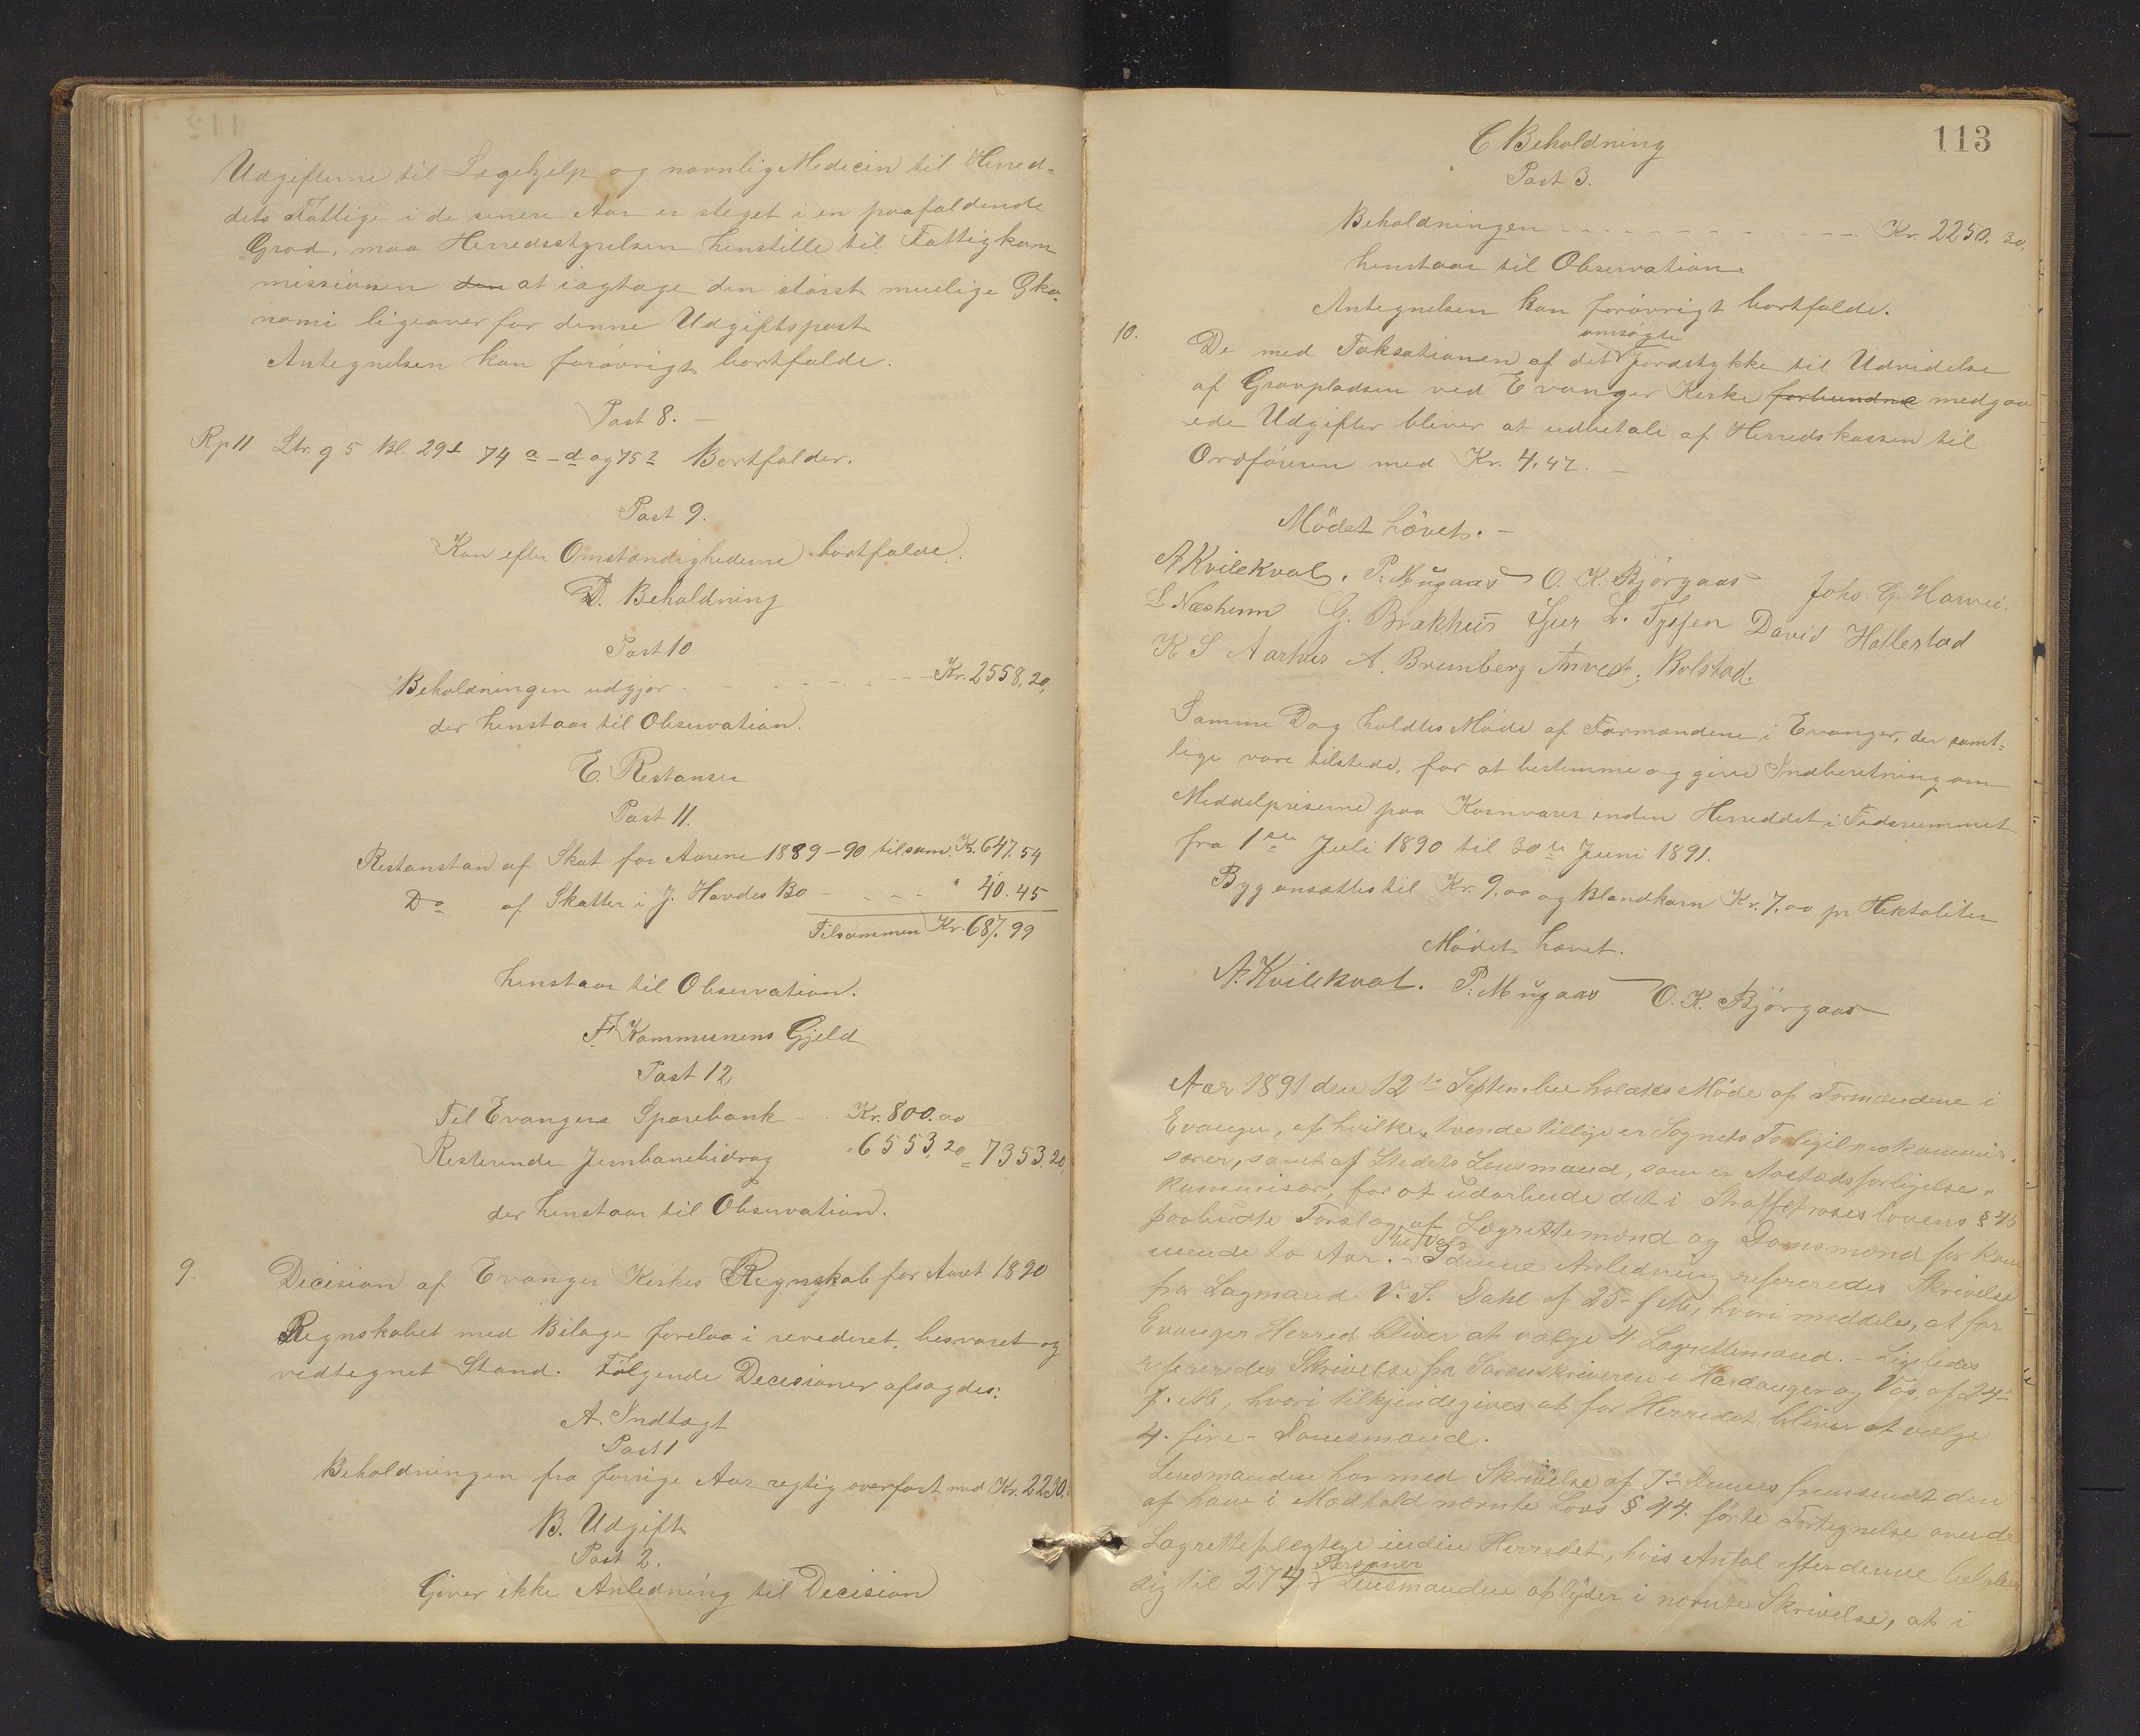 Udgifterne til Lægehjelp og navnlig Medicin til Herred-
dets Fattige i de senere Aar er steget i en paafaldende
Grad, maa Herredsstyrelsen henstille til Fattigkom
missionen den at iagtage den størst muelige Øko-
nomi ligeoverfor denne Udgiftspost
Antegnelsen kan forøvrigt bortfalde.
Post 8. –
Rp 11 Ltr. g 5 Bl. 29 74 a – d og 75 Bortfalder.
Post 9.
Kan efter Omstændighederne bortfalde.
D. Beholdning
Post 10
Beholdningen udgjør - - - - - - Kr. 2558,20,
der henstaar til Observation.
E. Restanser
Post 11.
Restanstan af Skat for Aarene 1889–90 tilsam. Kr. 647.54
Do af Skatter i J. Havdes Bo - - - " 40.45
Tilsammen Kr. 687.99
henstaar til Observation.
F. Kommunens Gjeld
Post 12
Til Evangers Sparebank - Kr. 800.00
Resterende Jernbanebidrag 6553,20 = 7353,20,
der henstaar til Observation.
9. Decision af Evanger Kirkes Regnskab for Aaret 1890
Regnskabet med Bilage forelaa i revederet, besvaret og
vedtegnet Stand. Følgende Decisioner afsagdes:
A. Indtægt
Post 1
Beholdningen fra forrige Aar regtig overført med Kr. 2230.
B. Udgift
Post 2.
Giver ikke Anledning til Decision
113
C Beholdning
Post 3.
Beholdningen - - - - - - Kr. 2250.30.
henstaar til Observation.
Antegnelsen kan forøvrigt bortfalde.
omsøgte
10. De med Taksationen af det Jordstykke til Udvidelse
af Gravpladsen ved Evanger Kirke forbundne medgaa
ede Udgifter bliver at udbetale af Herredskassen til
Ordføreren med Kr. 4.47. –
Mödet hævet. –
A Kvilekval. P. Mügaas O. K. Bjørgaas Johs. G. Horvei.
L Næsheim G. Brækhus Sjur L. Tyssen David Hallestad
K S Aarhus A. Brunberg Anved. Bolstad.
Samme Dag holdtes Møde af Formændene i Evanger, der samt-
lige vare tilstede, for at bestemme og give Indberetning om
Middelpriserne paa Kornvarer inden Herreddet i Tidsrummet
fra 1ste Juli 1890 til 30te Juni 1891.
Byg ansættes til Kr. 9.00 og Blandkorn Kr. 7.00 pr Hektoliter
Mødet hævet.
A. Kvilekval. P. Mügaas O. K. Bjørgaas
Aar 1891 den 12te September holdtes Møde af Formændene i
Evanger, af hvilke tvende tillige er Sognets Forligelseskommis-
særer, samt af Stedets Lensmand, som er Aastedsforligelses-
kommisær, for at udarbeide det i Straffeproseslovens § 43
paabudte Forslag af Lægrettemænd og Domsmænd for kom
til Valg
mende to Aar. – I denne Anledning refereredes Skrivelse
fra Lagmand V. S. Dahl af 25– f. M., hvori meddeles, at for
Evanger Herred bliver at vælge 4 Lagrettemænd. – Ligeledes
refereredes Skrivelse fra Sorenskriveren i Hardanger og Vos, af 24–
f. M., hvori tilkjendegives at for Herredet bliver at vælge
4. fire – Domsmænd.
Lensmanden har med Skrivelse af 7– dennes fremsendt den
af ham i Medhold nævnte Lovs § 44. førte Fortegnelse over de
Lagretteplegtige inden Herredet, hvis Antal efter denne beløber
Personer
sig til 274. Lensmanden oplyser i nævnte Skrivelse, at i